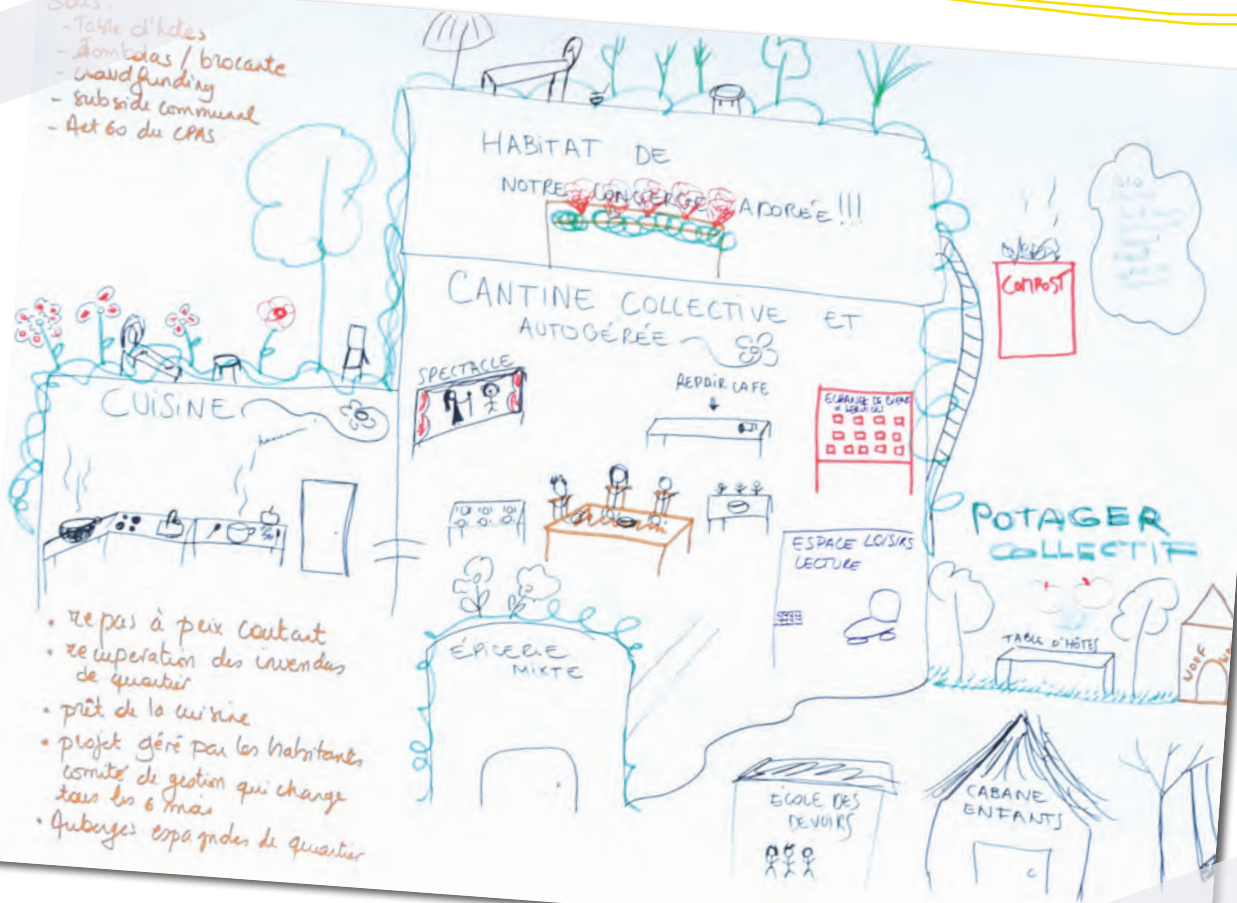 Sous :
- Table d'hôtes
- Tombolas / brocante
- crowdfunding
- subside communal
- Act 60 du CPAS
HABITAT DE
NOTRE CONCIERGE ADORÉE !!!
CANTINE COLLECTIVE ET
AUTOGÉRÉE
SPECTACLE
REPAIR CAFE
ECHANGE DE BIENS
& SERVICES
COMPOST
CUISINE
ESPACE LOISIRS
LECTURE
POTAGER
COLLECTIF
TABLE D'HÔTES
WOOF
ÉPICERIE
MIXTE
ECOLE DES
DEVOIRS
CABANE
ENFANTS
• repas à prix coutant
• recuperation des invendus
de quartier
• prêt de la cuisine
• projet géré par les habitants
comité de gestion qui change
tous les 6 mois
• Auberges espagnoles de quartier